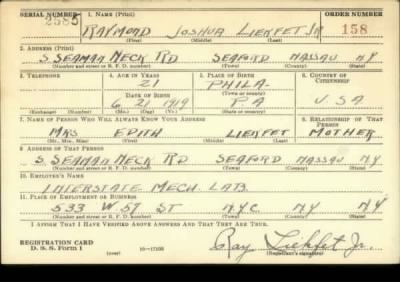 SERIAL NUMBER 1. NAME (Print) ORDER NUMBER
2585 RAYMOND JOSHUA LIEKFET JR 158
(First) (Middle) (Last)
2. ADDRESS (Print)
S. SEAMAN NECK RD SEAFORD NASSAU NY
(Number and street or R. F. D. number) (Town) (County) (State)
3. TELEPHONE 4. AGE IN YEARS 5. PLACE OF BIRTH 6. COUNTRY OF CITIZENSHIP
21 PHILA.
DATE OF BIRTH (Town or county)
6 21 1919 PA USA
(Exchange) (Number) (Mo.) (Day) (Yr.) (State or country)
7. NAME OF PERSON WHO WILL ALWAYS KNOW YOUR ADDRESS 8. RELATIONSHIP OF THAT PERSON
MRS EDITH LIEKFET MOTHER
(Mr., Mrs., Miss) (First) (Middle) (Last)
9. ADDRESS OF THAT PERSON
S. SEAMAN NECK RD SEAFORD NASSAU NY
(Number and street or R. F. D. number) (Town) (County) (State)
10. EMPLOYER'S NAME
INTERSTATE MECH. LABS
11. PLACE OF EMPLOYMENT OR BUSINESS
533 W. 57 ST NYC NY NY
(Number and street or R. F. D. number) (Town) (County) (State)
I AFFIRM THAT I HAVE VERIFIED ABOVE ANSWERS AND THAT THEY ARE TRUE.
REGISTRATION CARD
D. S. S. Form 1 (over) 16—17105 Ray Liekfet Jr.
(Registrant's signature)